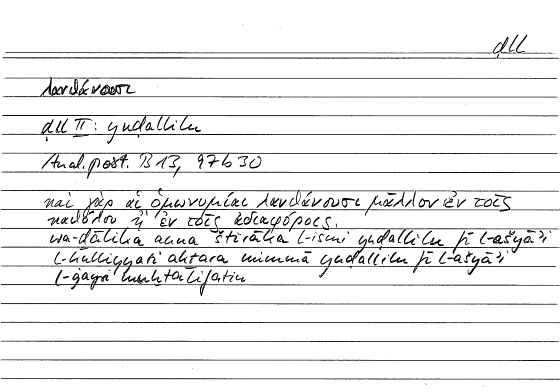 ḍll
λανθάνουσι
ḍll II: yuḍallilu
Anal. post. B 13, 97b30
καὶ γὰρ αἱ ὁμωνυμίαι λανθάνουσι μᾶλλον ἐν τοῖς
καθόλου ἢ ἐν τοῖς ἀδιαφόροις.
wa-ḏālika anna štirāka l-ismi yuḍallilu fī l-ašyāʾi
l-kulliyyati akṯara mimmā yuḍallilu fī l-ašyāʾi
l-ġayri muḫtalifatin